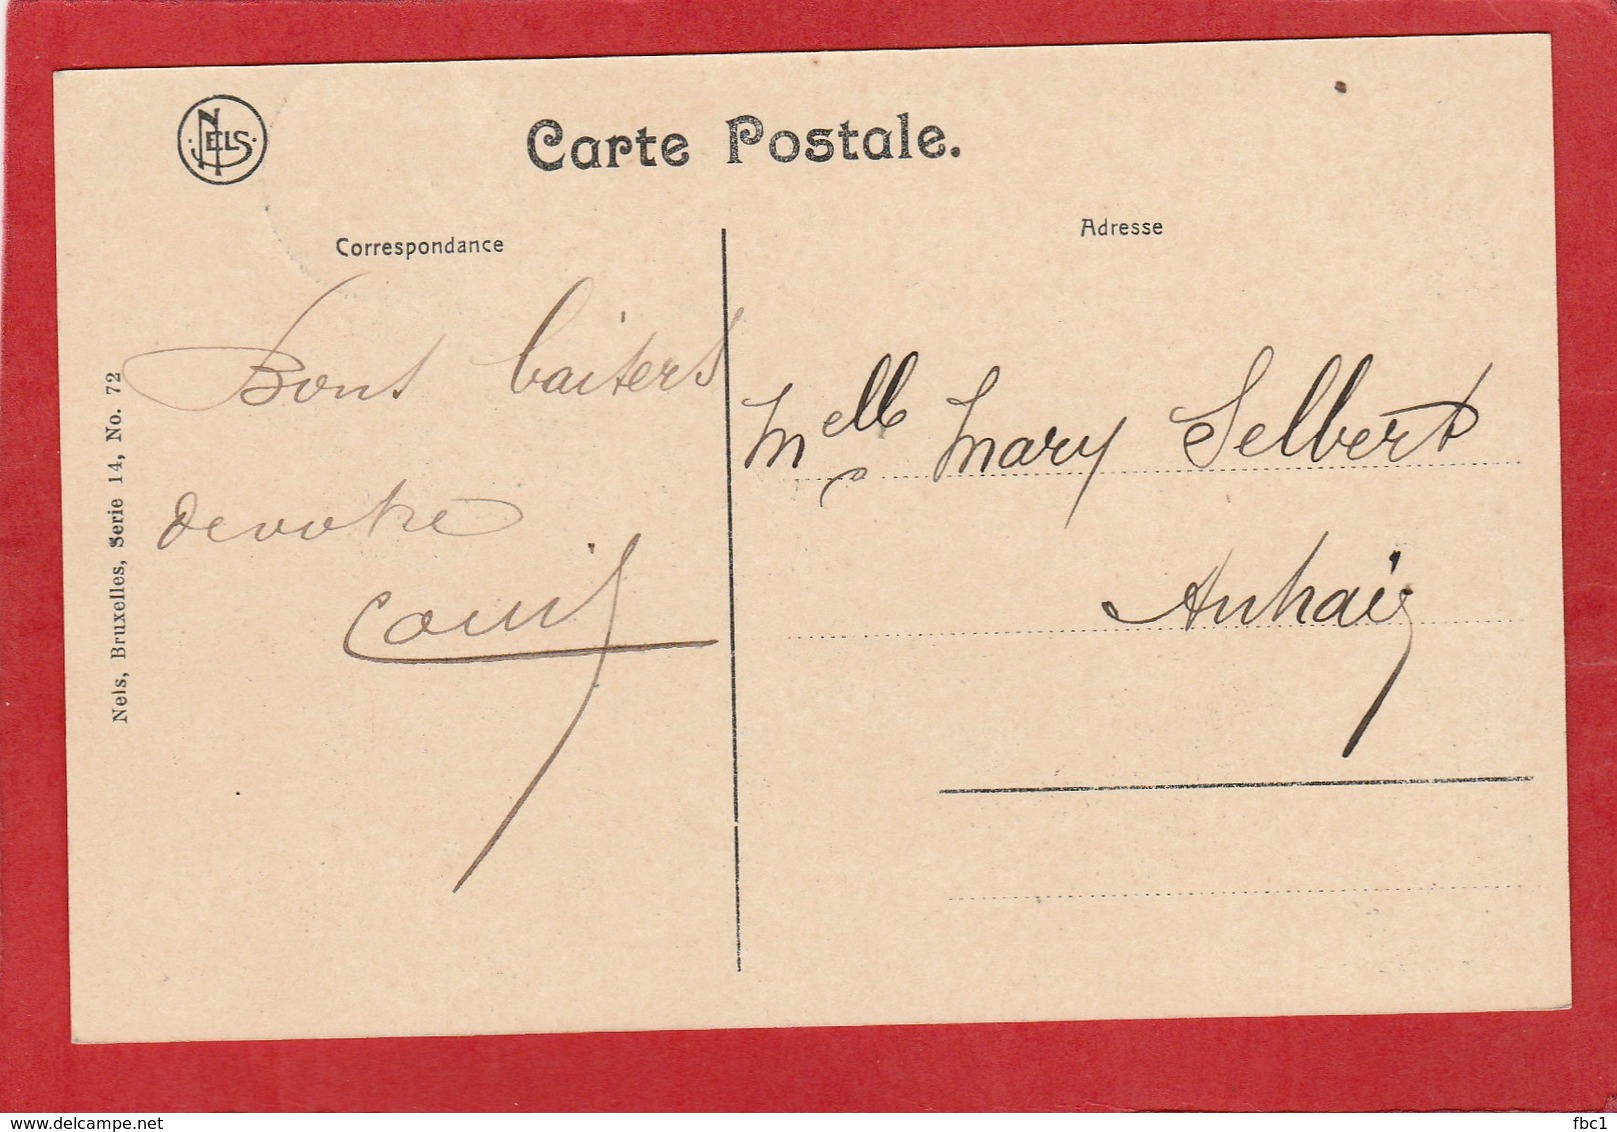 NELS
Carte Postale.
Correspondance
Adresse
Bons baisers
de votre
Nels, Bruxelles, Serie 14, No. 72
Melle Mary Selbert
www.delcampe.net
fbc1